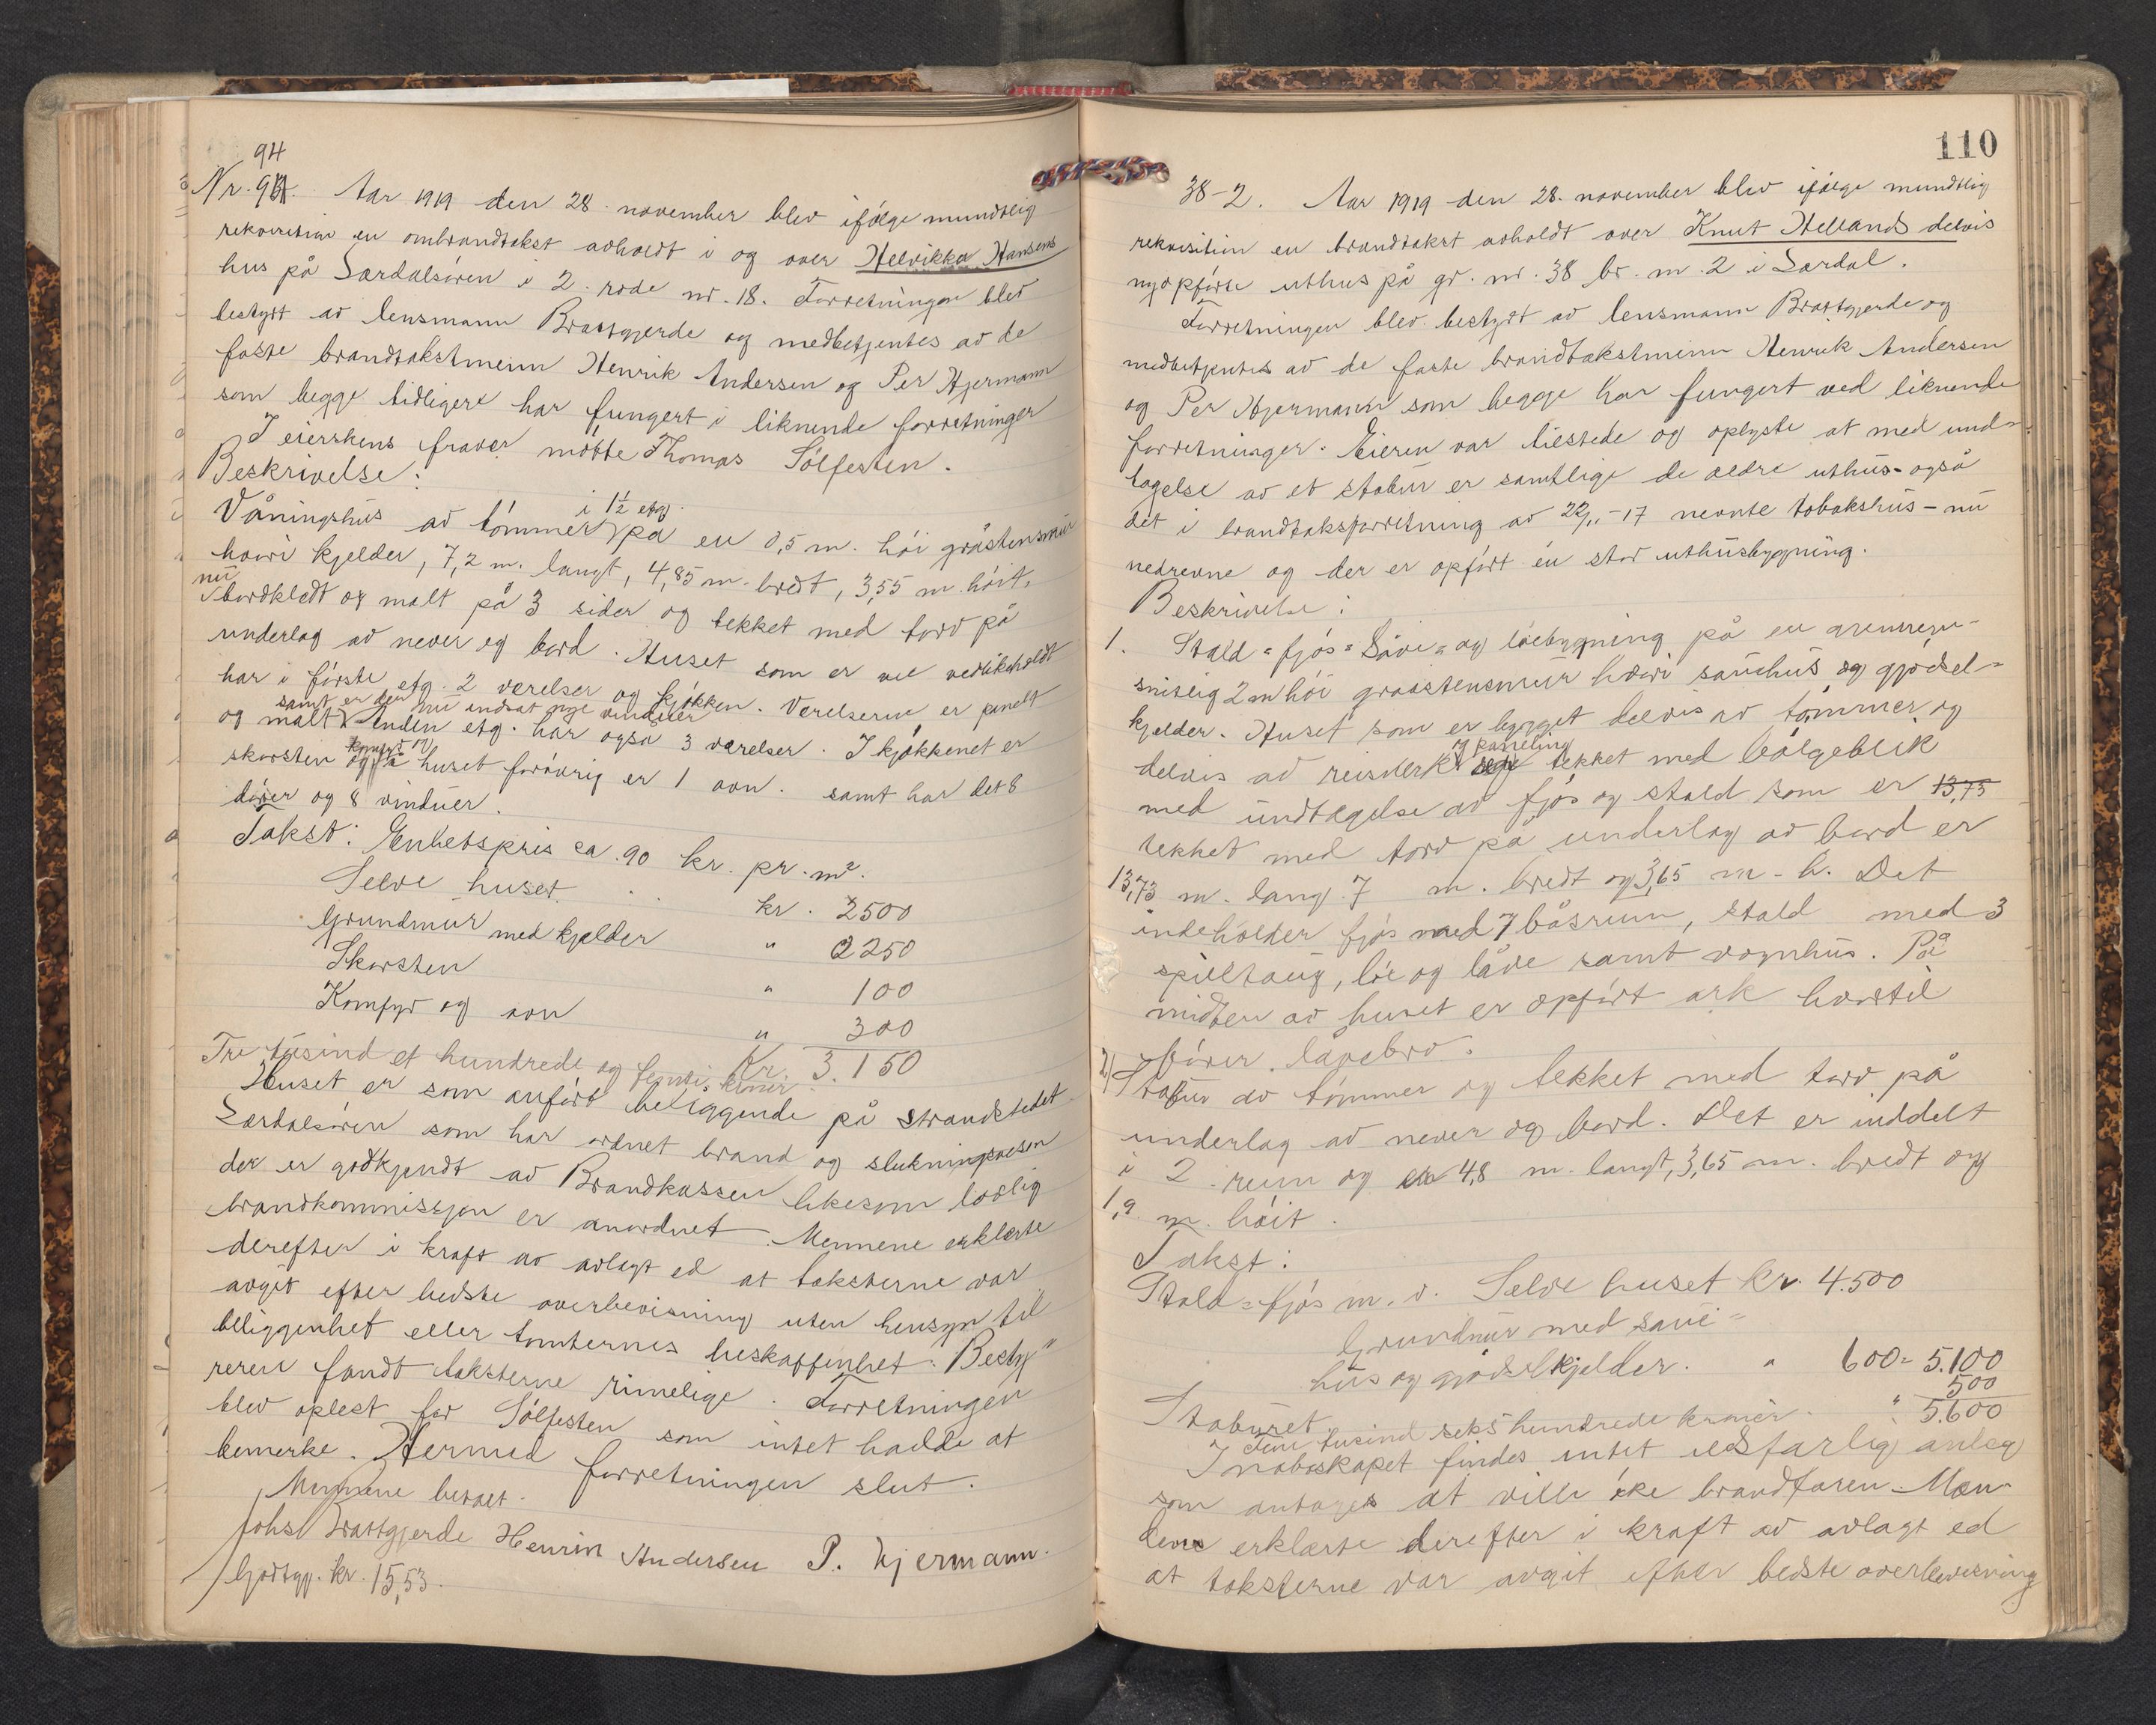 94
Nr. 94. Aar 1919 den 28. november blev ifølge mundtlig
rekvisition en ombrandtakst avholdt i og over Helvikka Hansens
hus på Lærdalsøren i 2. rode nr. 18. Forretningen blev
bestyrt av lensmann Brattgjerde og medbetjentes av de
faste brandtakstmenn Henrik Andersen og Per Hjermann
som begge tidligere har fungert i liknende forretninger
I eierskens fravær møtte Thomas Sølfesten.
Beskrivelse:
i 1½ etg.
Våningshus av tømmer på en 0,5 m. høi gråstensmur
hvori kjelder, 7,2 m. langt, 4,85 m. bredt, 3,55 m. høit.
nu
bordklædt og malt på 3 sider og tekket med torv på
underlag av never og bord. Huset som er vel vedlikeholdt
har i første etg. 2 værelser og kjøkken. Værelserne er panelt
samt er der nu indsat nye vinduer
og malt. Anden etg. har også 3 værelser. I kjøkkenet er
komfyr og
skorsten og i huset forøvrig er 1 ovn. samt har det 8
dører og 8 vinduer.
Takst: Enhetspris ca. 90 kr. pr. m².
Selve huset. kr. 2500
Grundmur med kjelder " 250
Skorsten " 100
Komfyr og ovn " 300
Kr. 3.150
Tre tusind et hundrede og femti kroner
Huset er som anført beliggende på strandstedet
Lærdalsøren som har ordnet brand og slukningsvæsen
der er godkjendt av Brandkassen likesom lovlig
brandkommissjon er anordnet. Mennene erklærte
derefter i kraft av avlagt ed at taksterne var
avgit efter bedste overbevisning uten hensyn til
beliggenhet eller tomternes beskaffenhet. Besty-
reren fandt taksterne rimelige. Forretningen
blev oplest for Sølfesten som intet hadde at
bemerke. Hermed forretningen slut.
Mennene betalt.
Johs Brattgjerde Henrik Andersen P. Hjermann.
Godtgj. kr. 15,53.
110
38-2. Aar 1919 den 28. november blev ifølge mundtlig
rekvisition en brandtakst avholdt over Knut Hellands delvis
nyopførte uthus på gr. nr. 38 br. nr. 2 i Lærdal.
Forretningen blev bestyrt av lensmann Brattgjerde og
medbetjentes av de faste brandtakstmenn Henrik Andersen
og Per Hjermann som begge har fungert ved liknende
forretninger. Eieren var tilstede og oplyste at med und-
tagelse av et stabur er samtlige de ældre uthus - også
det i brandtakstforretning av 22/11-17 nevnte tobakshus - nu
nedrevne og der er opført en stor uthusbygning.
Beskrivelse:
1. Stald- fjøs- låve- og løebygning på en gjennem-
snitlig 2 m høi graastensmur hvori sauehus og gjødsel-
kjelder. Huset som er bygget delvis av tømmer og
og paneling
delvis av reisverk tekket med bølgeblik
med undtagelse av fjøs og stald som er 13,73
tekket med torv på underlag av bord er
13,73 m. lang 7 m. bredt og 3,65 m. h. Det
indeholder fjøs med 7 båsrum, stald med 3
spilltaug, løe og låve samt vognhus. På
midten av huset er opført ark hvortil
fører låvebro.
2) Stabur av tømmer og tekket med torv på
underlag av never og bord. Det er inddelt
i 2 rum og er 4,8 m. langt, 3,65 m. bredt og
1,9 m. høit.
Takst:
Stald- fjøs m. v. Selve huset kr. 4.500
Grundmur med saue-
hus og gjødselkjelder. " 600 = 5.100
Staburet " 500
" 5.600
Fem tusind seks hundrede kroner.
I naboskapet findes intet ildsfarlig anlæg
som antages at ville øke brandfaren. Mæn-
dene erklærte derefter i kraft av avlagt ed
at taksterne var avgit efter bedste overbevisning